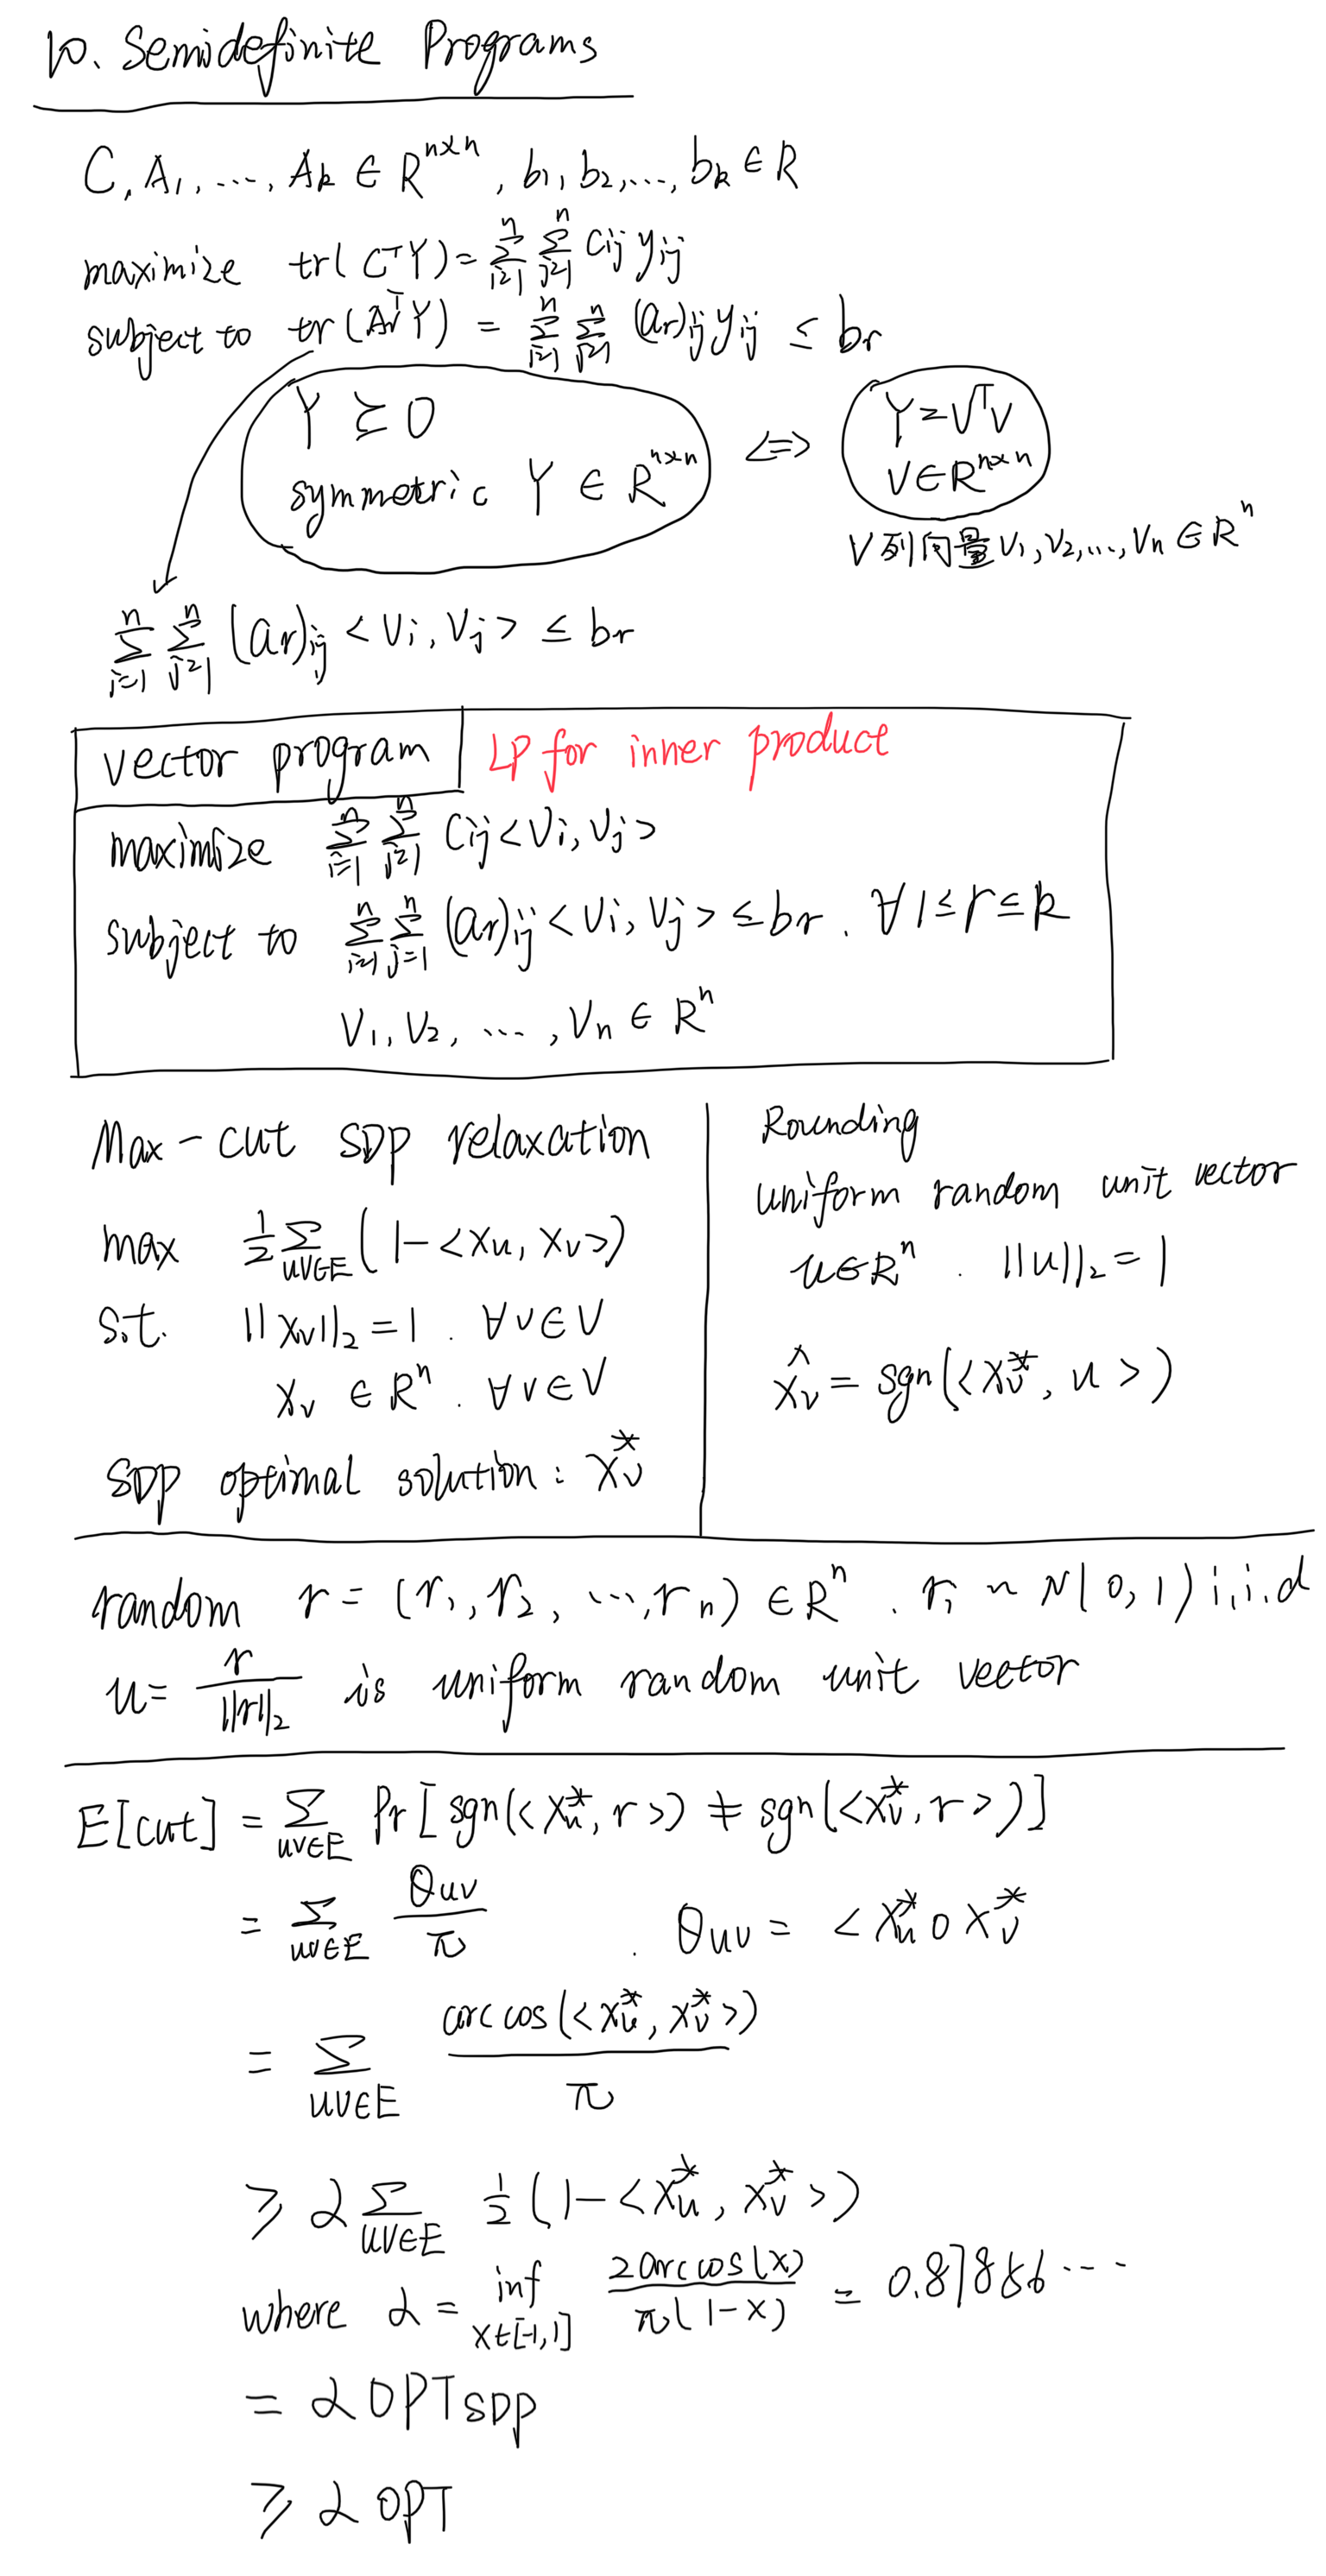 10. Semidefinite Programs
C, A₁, ..., Aₖ ∈ R^{n×n}, b₁, b₂, ..., bₖ ∈ R
maximize tr(CᵀY) = Σ_{i=1}^{n} Σ_{j=1}^{n} c_{ij} y_{ij}
subject to tr(A_rᵀY) = Σ_{i=1}^{n} Σ_{j=1}^{n} (a_r)_{ij} y_{ij} ≤ b_r
Y ⪰ 0
symmetric Y ∈ R^{n×n}
⟺
Y = VᵀV
V ∈ R^{n×n}
V 列向量 v₁, v₂, ..., vₙ ∈ Rⁿ
Σ_{i=1}^{n} Σ_{j=1}^{n} (a_r)_{ij} <v_i, v_j> ≤ b_r
vector program
LP for inner product
maximize Σ_{i=1}^{n} Σ_{j=1}^{n} c_{ij} <v_i, v_j>
subject to Σ_{i=1}^{n} Σ_{j=1}^{n} (a_r)_{ij} <v_i, v_j> ≤ b_r. ∀ 1 ≤ r ≤ k
v₁, v₂, ..., vₙ ∈ Rⁿ
Max-cut SDP relaxation
max ½ Σ_{uv∈E} (1 - <x_u, x_v>)
s.t. ||x_v||₂ = 1. ∀ v ∈ V
x_v ∈ Rⁿ. ∀ v ∈ V
SDP optimal solution: x_v^*
Rounding
uniform random unit vector
u ∈ Rⁿ. ||u||₂ = 1
x̂_v = sgn(<x_v^*, u>)
random r = (r₁, r₂, ..., rₙ) ∈ Rⁿ. r_i ~ N(0, 1) i.i.d
u = r / ||r||₂ is uniform random unit vector
E[cut] = Σ_{uv∈E} Pr[sgn(<x_u^*, r>) ≠ sgn(<x_v^*, r>)]
= Σ_{uv∈E} θ_{uv} / π . θ_{uv} = < x_u^* 0 x_v^*
= Σ_{uv∈E} arccos(<x_u^*, x_v^*>) / π
≥ α Σ_{uv∈E} ½ (1 - <x_u^*, x_v^*>)
where α = inf_{x∈[-1,1]} 2arccos(x) / π(1-x) = 0.87856...
= α OPT_{SDP}
≥ α OPT